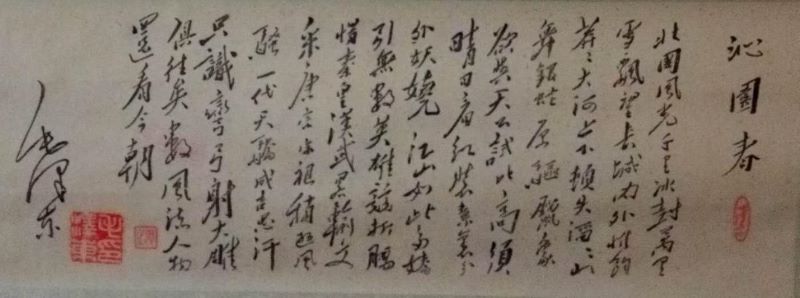 沁園春
北國風光千里冰封萬里
雪飄望長城内外惟餘
莽々大河上下頓失滔々山
舞銀蛇原驅臘象
欲與天公試比高須
晴日看红裝素裹
外妖嬈江山如此多嬌
引無數英雄競折腰
惜秦皇漢武略輸文
采唐宗宋祖稍遜風
騷一代天驕成吉思汗
只識彎弓射大雕
俱往矣數風流人物
還看今朝
毛澤東